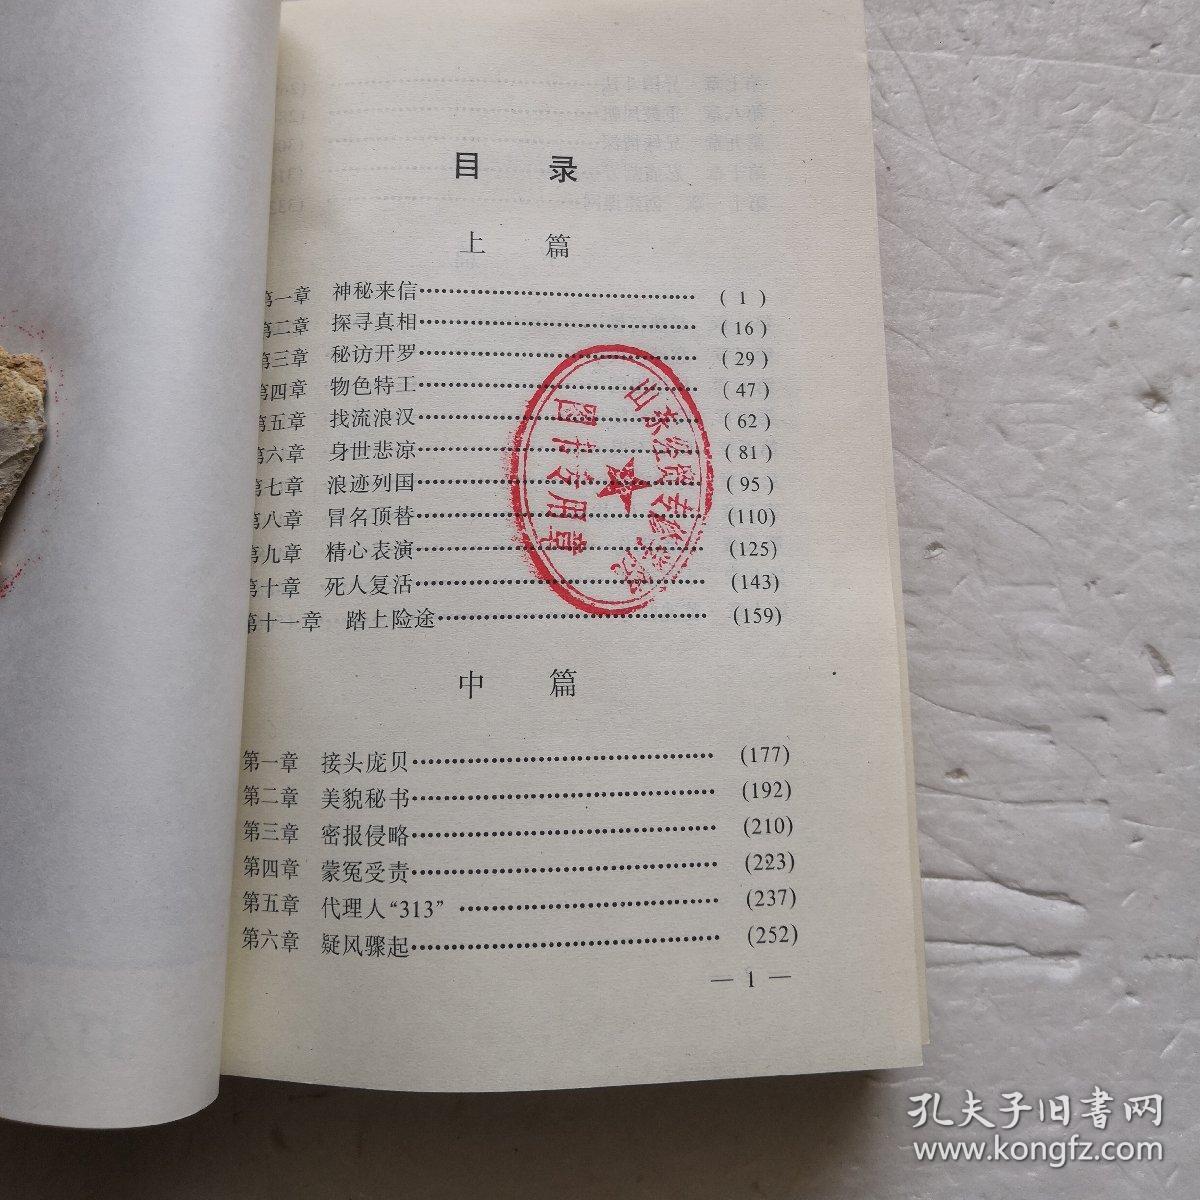 目 录
上 篇
第一章 神秘来信 (1)
第二章 探寻真相 (16)
第三章 秘访开罗 (29)
第四章 物色特工 (47)
第五章 找流浪汉 (62)
第六章 身世悲凉 (81)
第七章 浪迹列国 (95)
第八章 冒名顶替 (110)
第九章 精心表演 (125)
第十章 死人复活 (143)
第十一章 踏上险途 (159)
山东经贸专修学院
图书专用章
中 篇
第一章 接头庞贝 (177)
第二章 美貌秘书 (192)
第三章 密报侵略 (210)
第四章 蒙冤受责 (223)
第五章 代理人“313” (237)
第六章 疑风骤起 (252)
— 1 —
孔夫子旧书网
www.kongfz.com